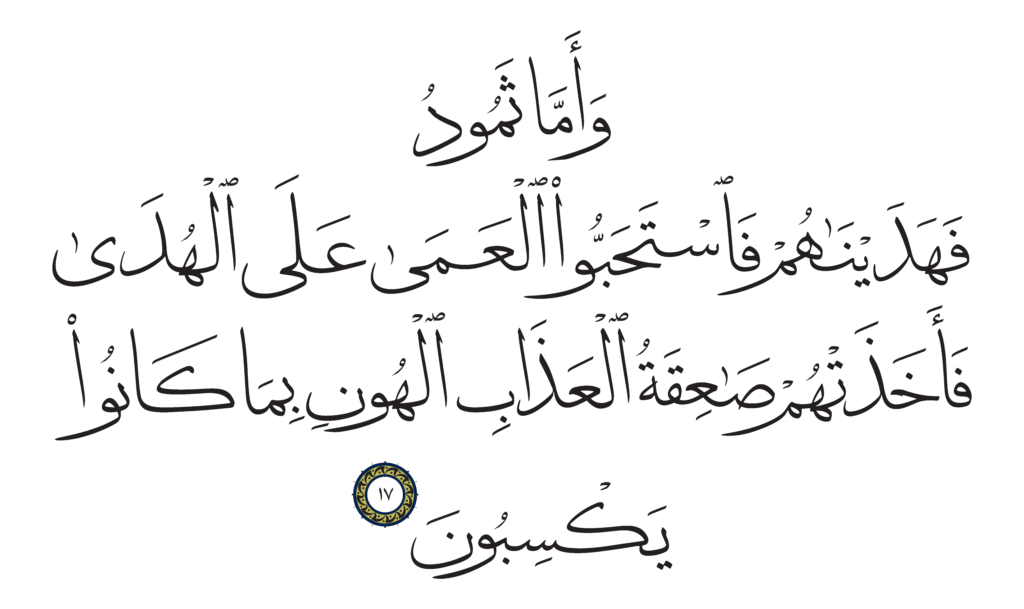 وَأَمَّا ثَمُودُ
فَهَدَيْنَٰهُمْ فَٱسْتَحَبُّوا۟ ٱلْعَمَىٰ عَلَى ٱلْهُدَىٰ
فَأَخَذَتْهُمْ صَٰعِقَةُ ٱلْعَذَابِ ٱلْهُونِ بِمَا كَانُوا۟
يَكْسِبُونَ ١٧